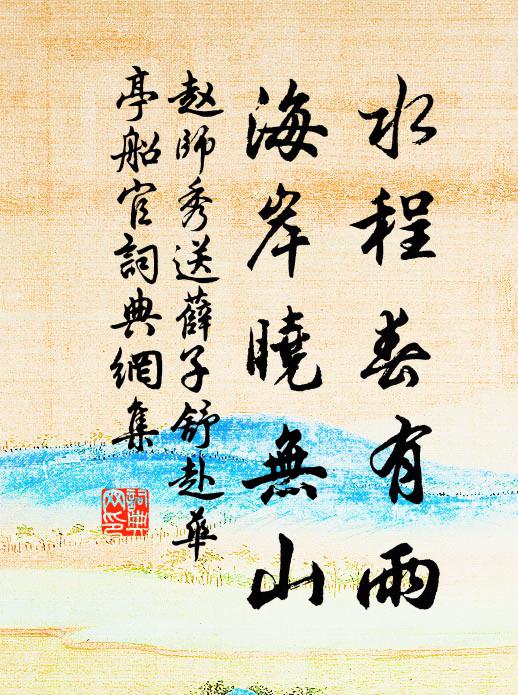 水程春有雨
海岸曉無山
赵師秀送薛子舒赴華
亭船官詞典網集